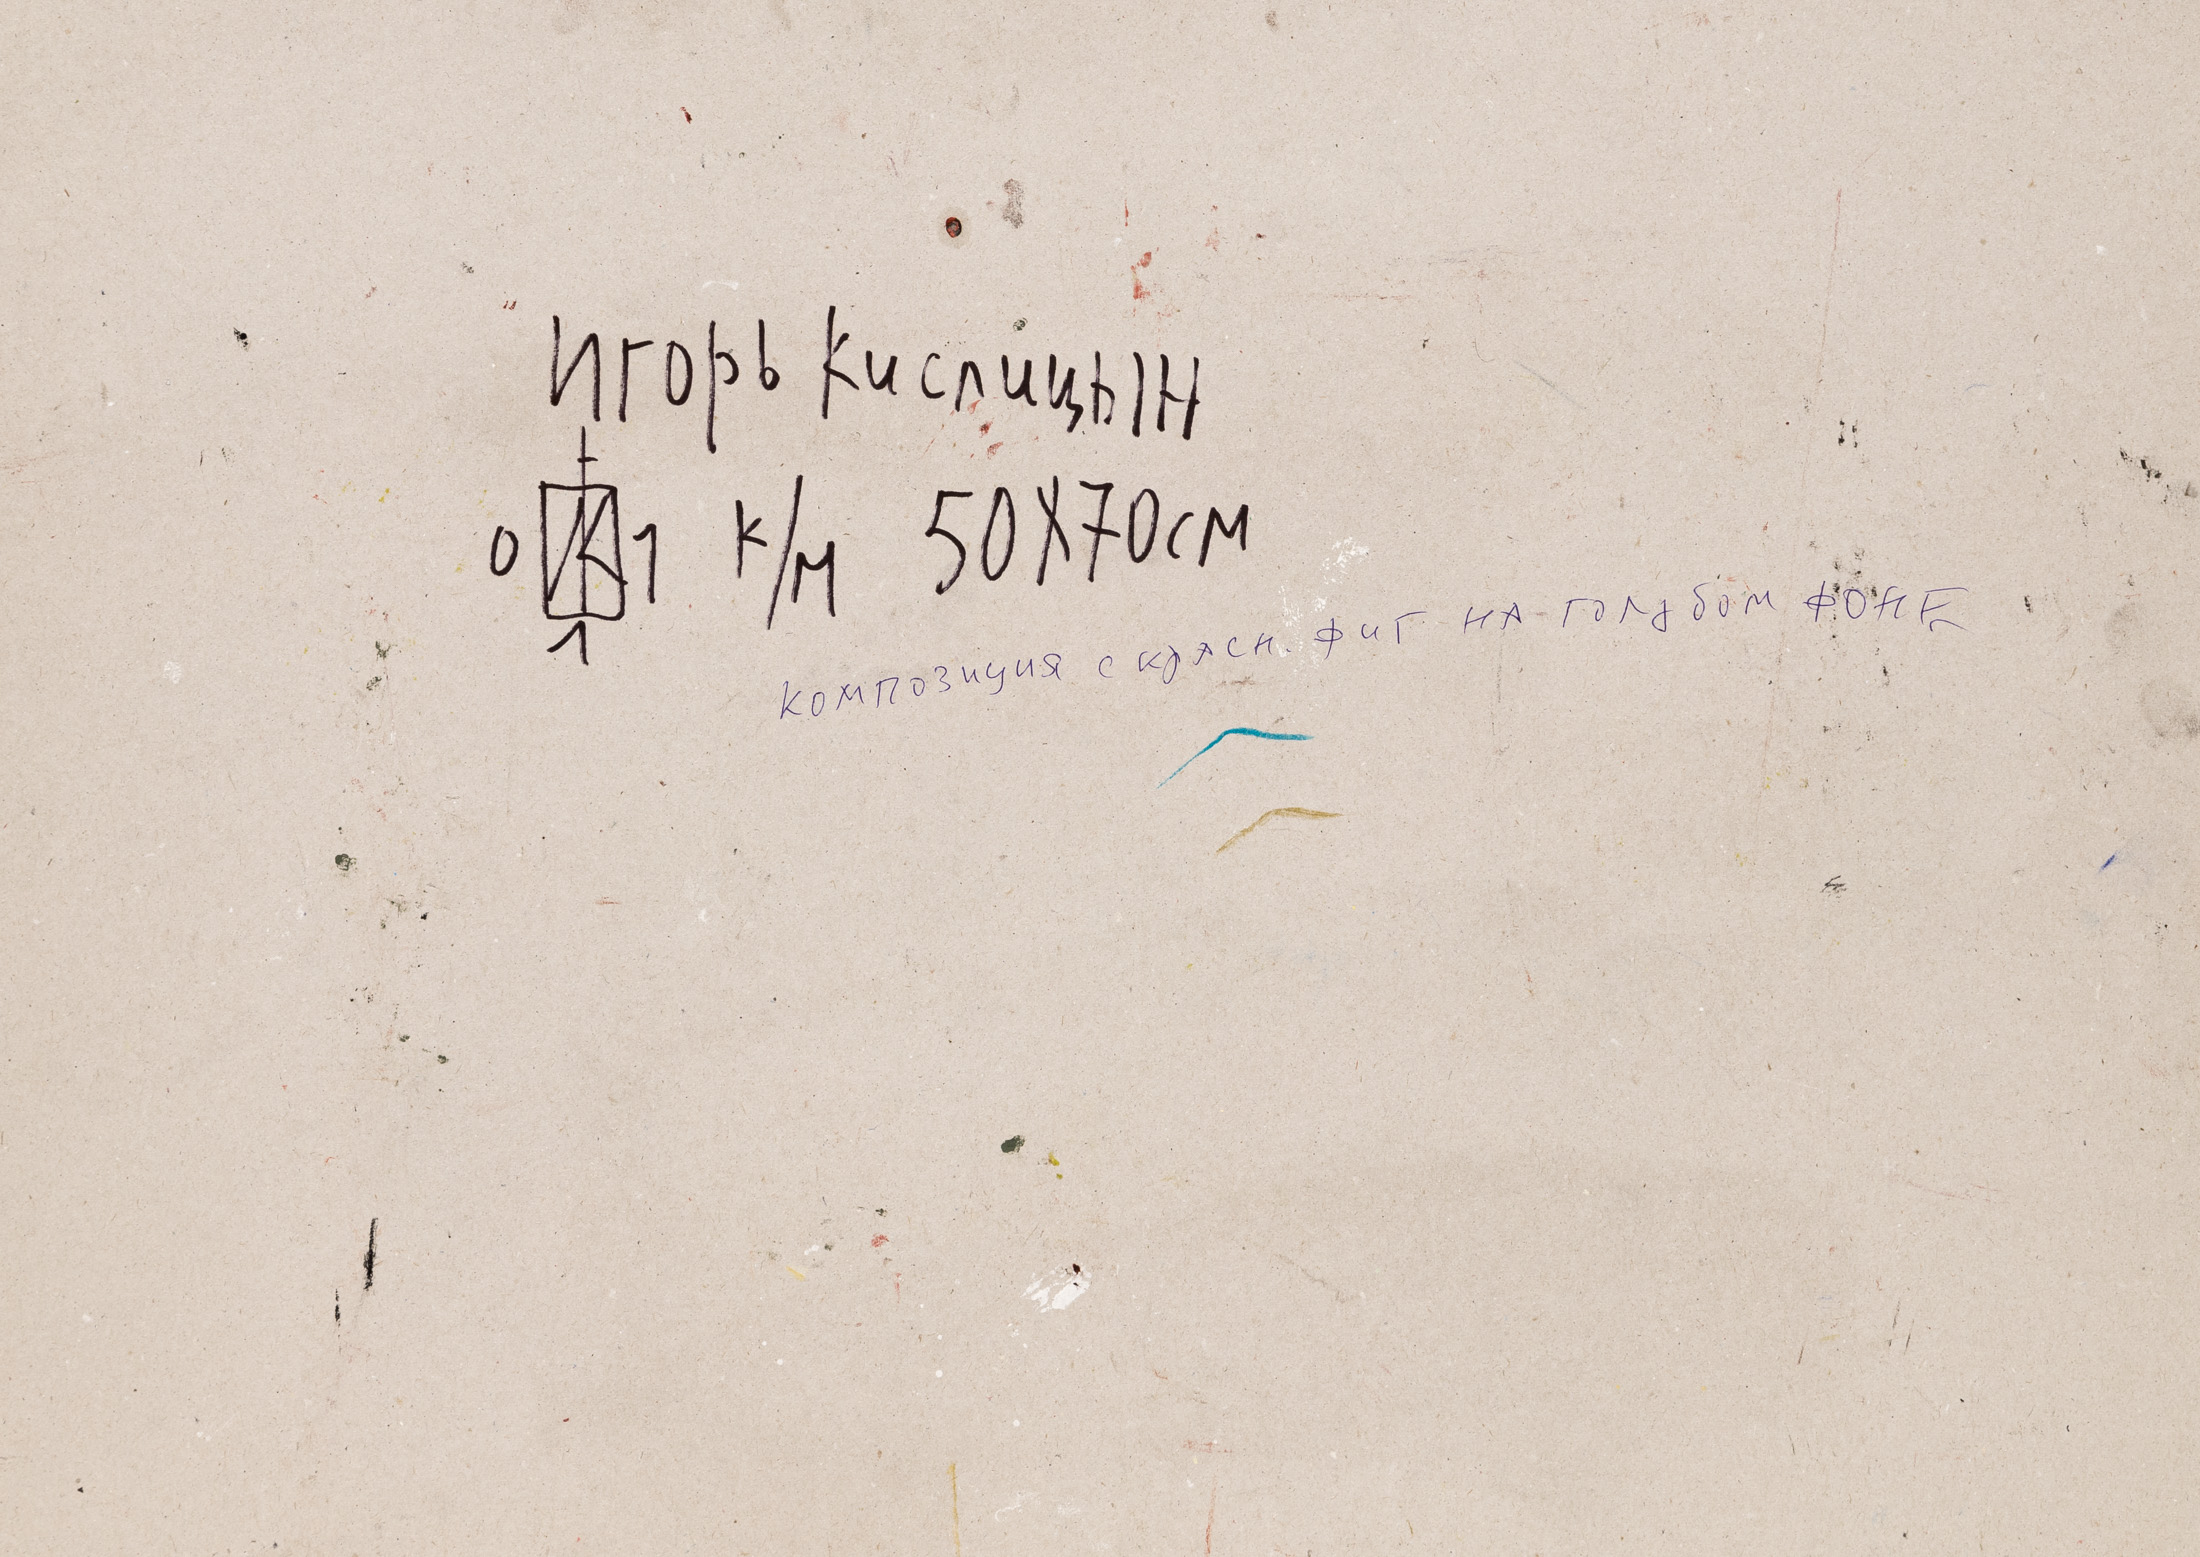 Игорь Кислицын
0 1 к/м 50Х70см
1
композиция с красн. фиг на голубом фоне